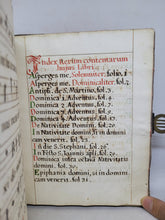 Index Rerum contentarum
huius Libri.
Asperges me, Solemniter, folio, 1
Asperges me, Dominicaliter, fol. 3
Antiphō. de S. Martino, fol. 5.
Dominica 1 Adventus, fol.
Dominica 2 Adventus, fol.
Dominica 3 Adventus, fol.
Dominica 4 Adventus, fol.
In Nativitate Domini, fol.
In Nativitate domini et in domini
cam venerit. fol.
In die S. Stephani, fol.
In Festo S. Joannis, fol.
Dominica infra octava Nativitatis
domini, fol.
Epiphania domini, et in domini
cam venerit. fol. 21.